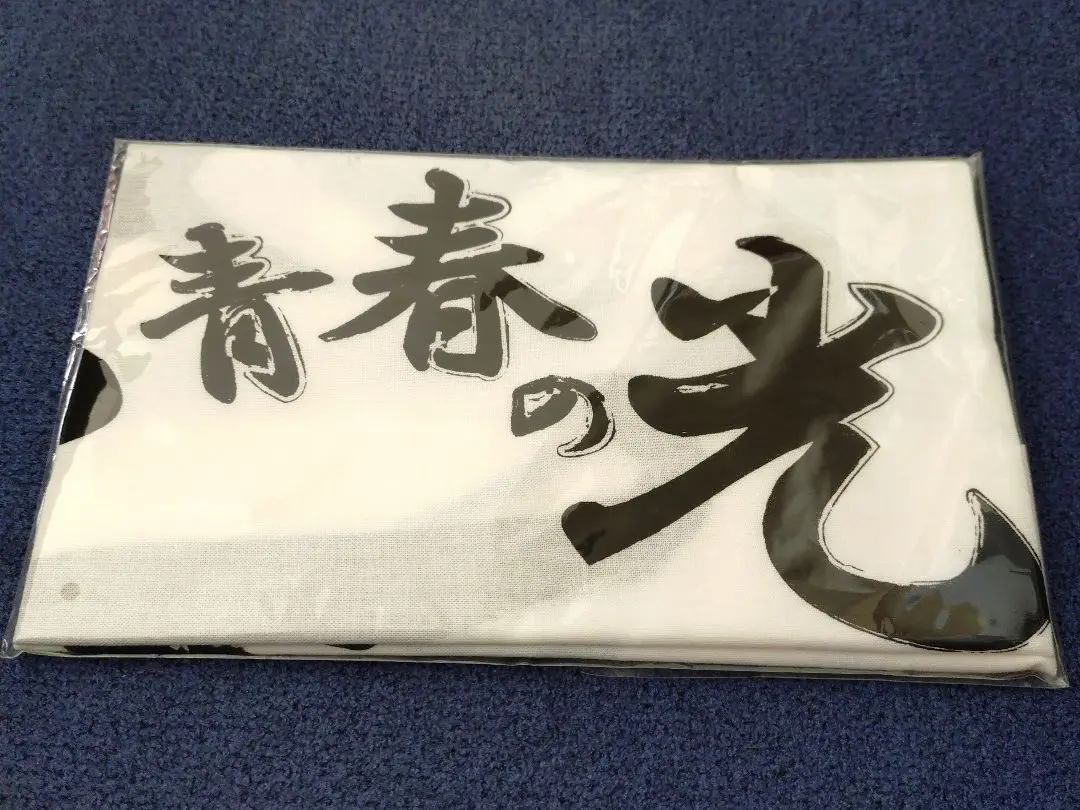 青春の光